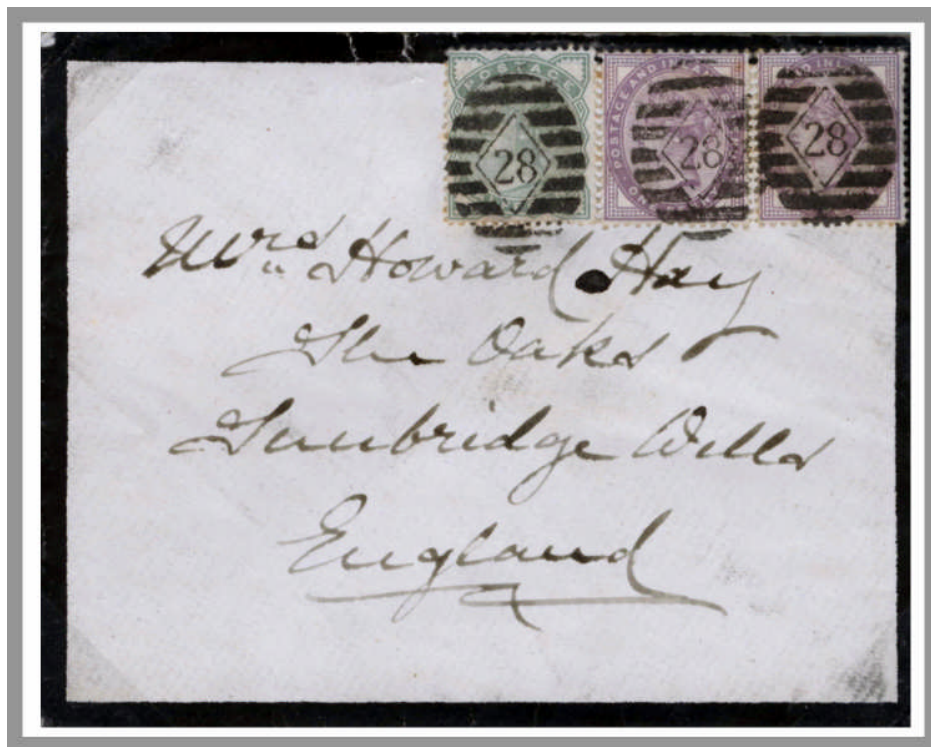 POSTAGE
28
POSTAGE AND IN
28
D IN
28
Mrs Howard Hay
The Oaks
Tunbridge Wells
England